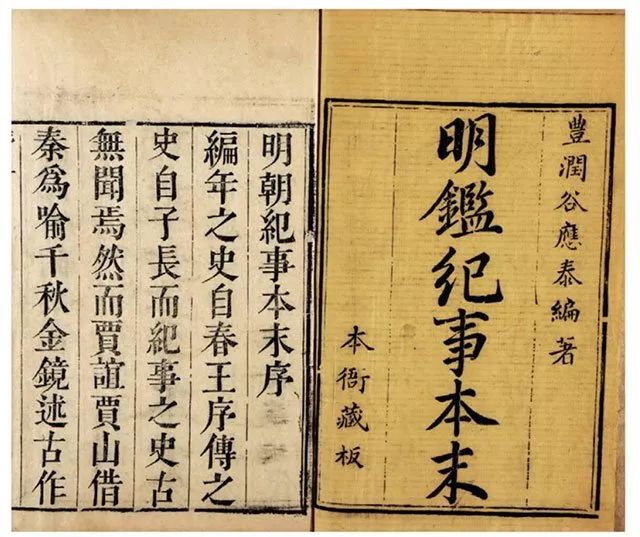 豐潤谷應泰編著
明鑑紀事本末
本衙藏板
明朝紀事本末序
編年之史自春王序傳之
史自子長而紀事之史古
無聞焉然而賈誼賈山借
秦爲喻千秋金鏡述古作